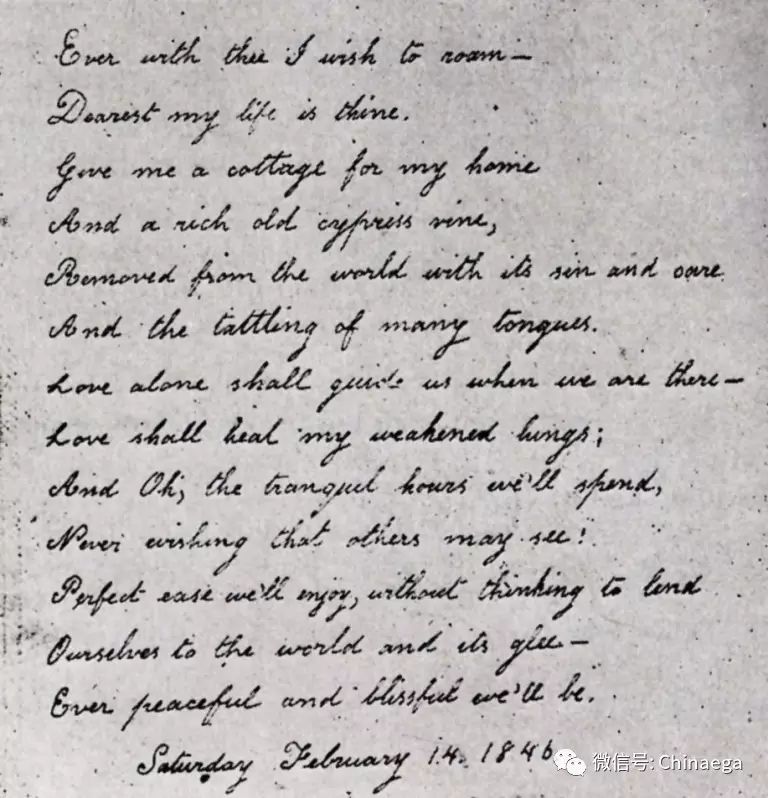 Ever with thee I wish to roam —
Dearest my life is thine.
Give me a cottage for my home
And a rich old cypress vine,
Removed from the world with its sin and care
And the tattling of many tongues.
Love alone shall guide us when we are there —
Love shall heal my weakened lungs;
And Oh, the tranquil hours we'll spend,
Never wishing that others may see!
Perfect ease we'll enjoy, without thinking to lend
Ourselves to the world and its glee —
Ever peaceful and blissful we'll be.
Saturday February 14. 1846
微信号: Chinaega